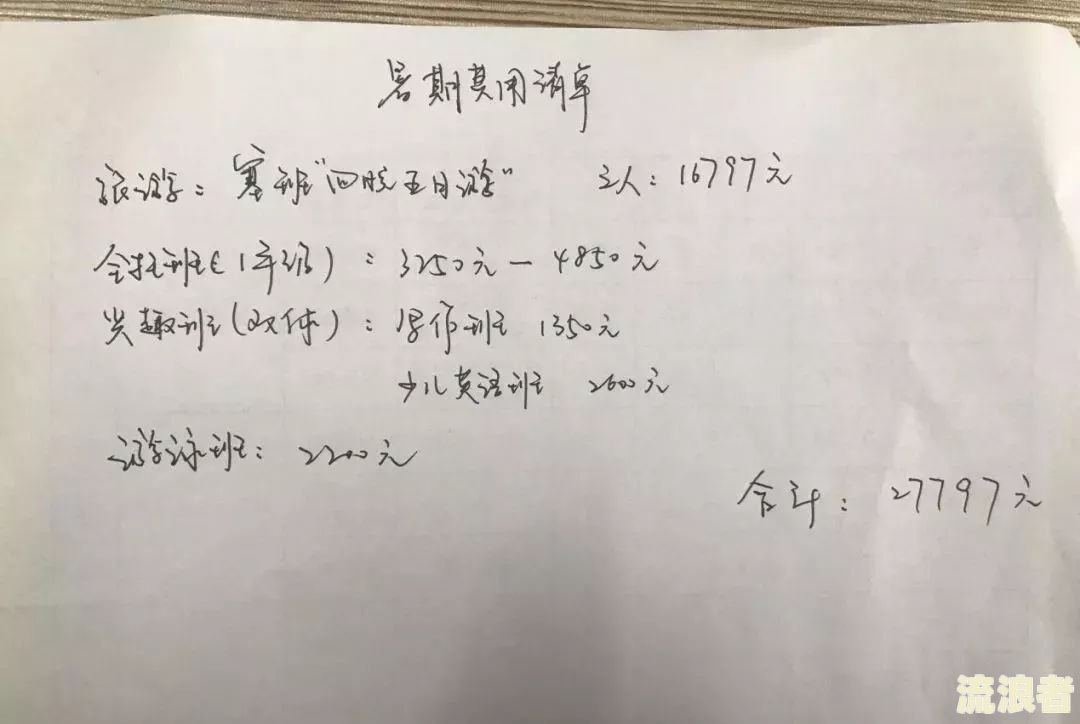 暑期费用清单
旅游：塞班“四晚五日游” 三人：16797元
全托班（1年级）：3250元－4850元
兴趣班（双休）：写作班 1350元
少儿英语班 2600元
游泳班：2200元
合计：27797元
流浪者